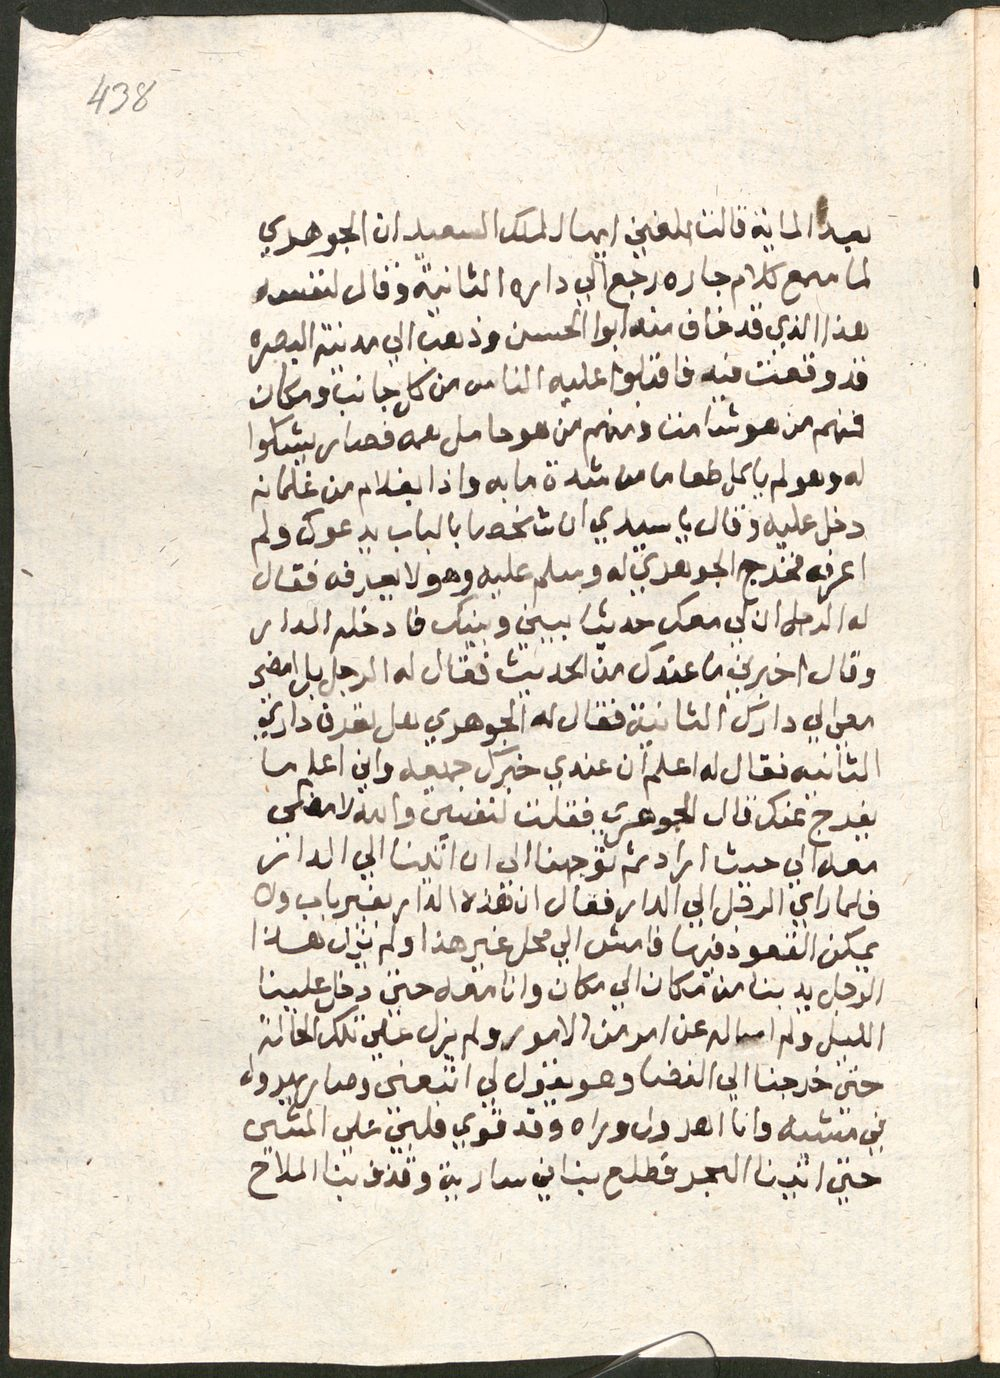 438
بعد الماية قالت بلغني ايها الملك السعيد ان الجوهري
لما سمع كلام جاره رجع الي داره الثانية وقال لنفسه
هذا الذي قد خاف منه ابوا الحسن وذهب الي مدينة البصره
قد وقعت فيه فاقبلوا عليه الناس من كل جانب ومكان
فمنهم من هو شامت ومنهم من هو حامل همه فصار يشكوا
له وهو لم ياكل طعاما من شدة ما به واذا بغلام من غلمانه
دخل عليه وقال يا سيدي ان شخصا بالباب يدعوك ولم
اعرفه فخرج الجوهري له وسلم عليه وهو لا يعرفه فقال
له الرجل ان لي معك حديثا بيني وبينك فادخله الدار
وقال اخبرني ما عندك من الحديث فقال له الرجل بل امضي
معي الي دارك الثانية فقال له الجوهري هل تعرف داري
الثانيه فقال له اعلم ان عندي خبرك جميعه واني اعلم ما
يفرج عنك قال الجوهري فقلت لنفسي والله لامضي
معه الي حيث اراد ثم توجهنا الي ان اتينا الي الدار
فلما راي الرجل الي الدار فقال ان هذه الدار بغير باب ولا
يمكن القعود فيها فامش الي محل غير هذا ولم يزل هذا
الرجل يد بنا من مكان الي مكان وانا معه حتي دخل علينا
الليل ولم اساله عن امر من الامور ولم يزل علي تلك الحالة
حتي خرجنا الي الفضا وهو يقول لي اتبعني وصار يهرول
في مشيه وانا اهرول وراه وقد قوي قلبي علي المشي
حتي اتينا البحر فطلع بنا في سارية وقذف بنا الملاح